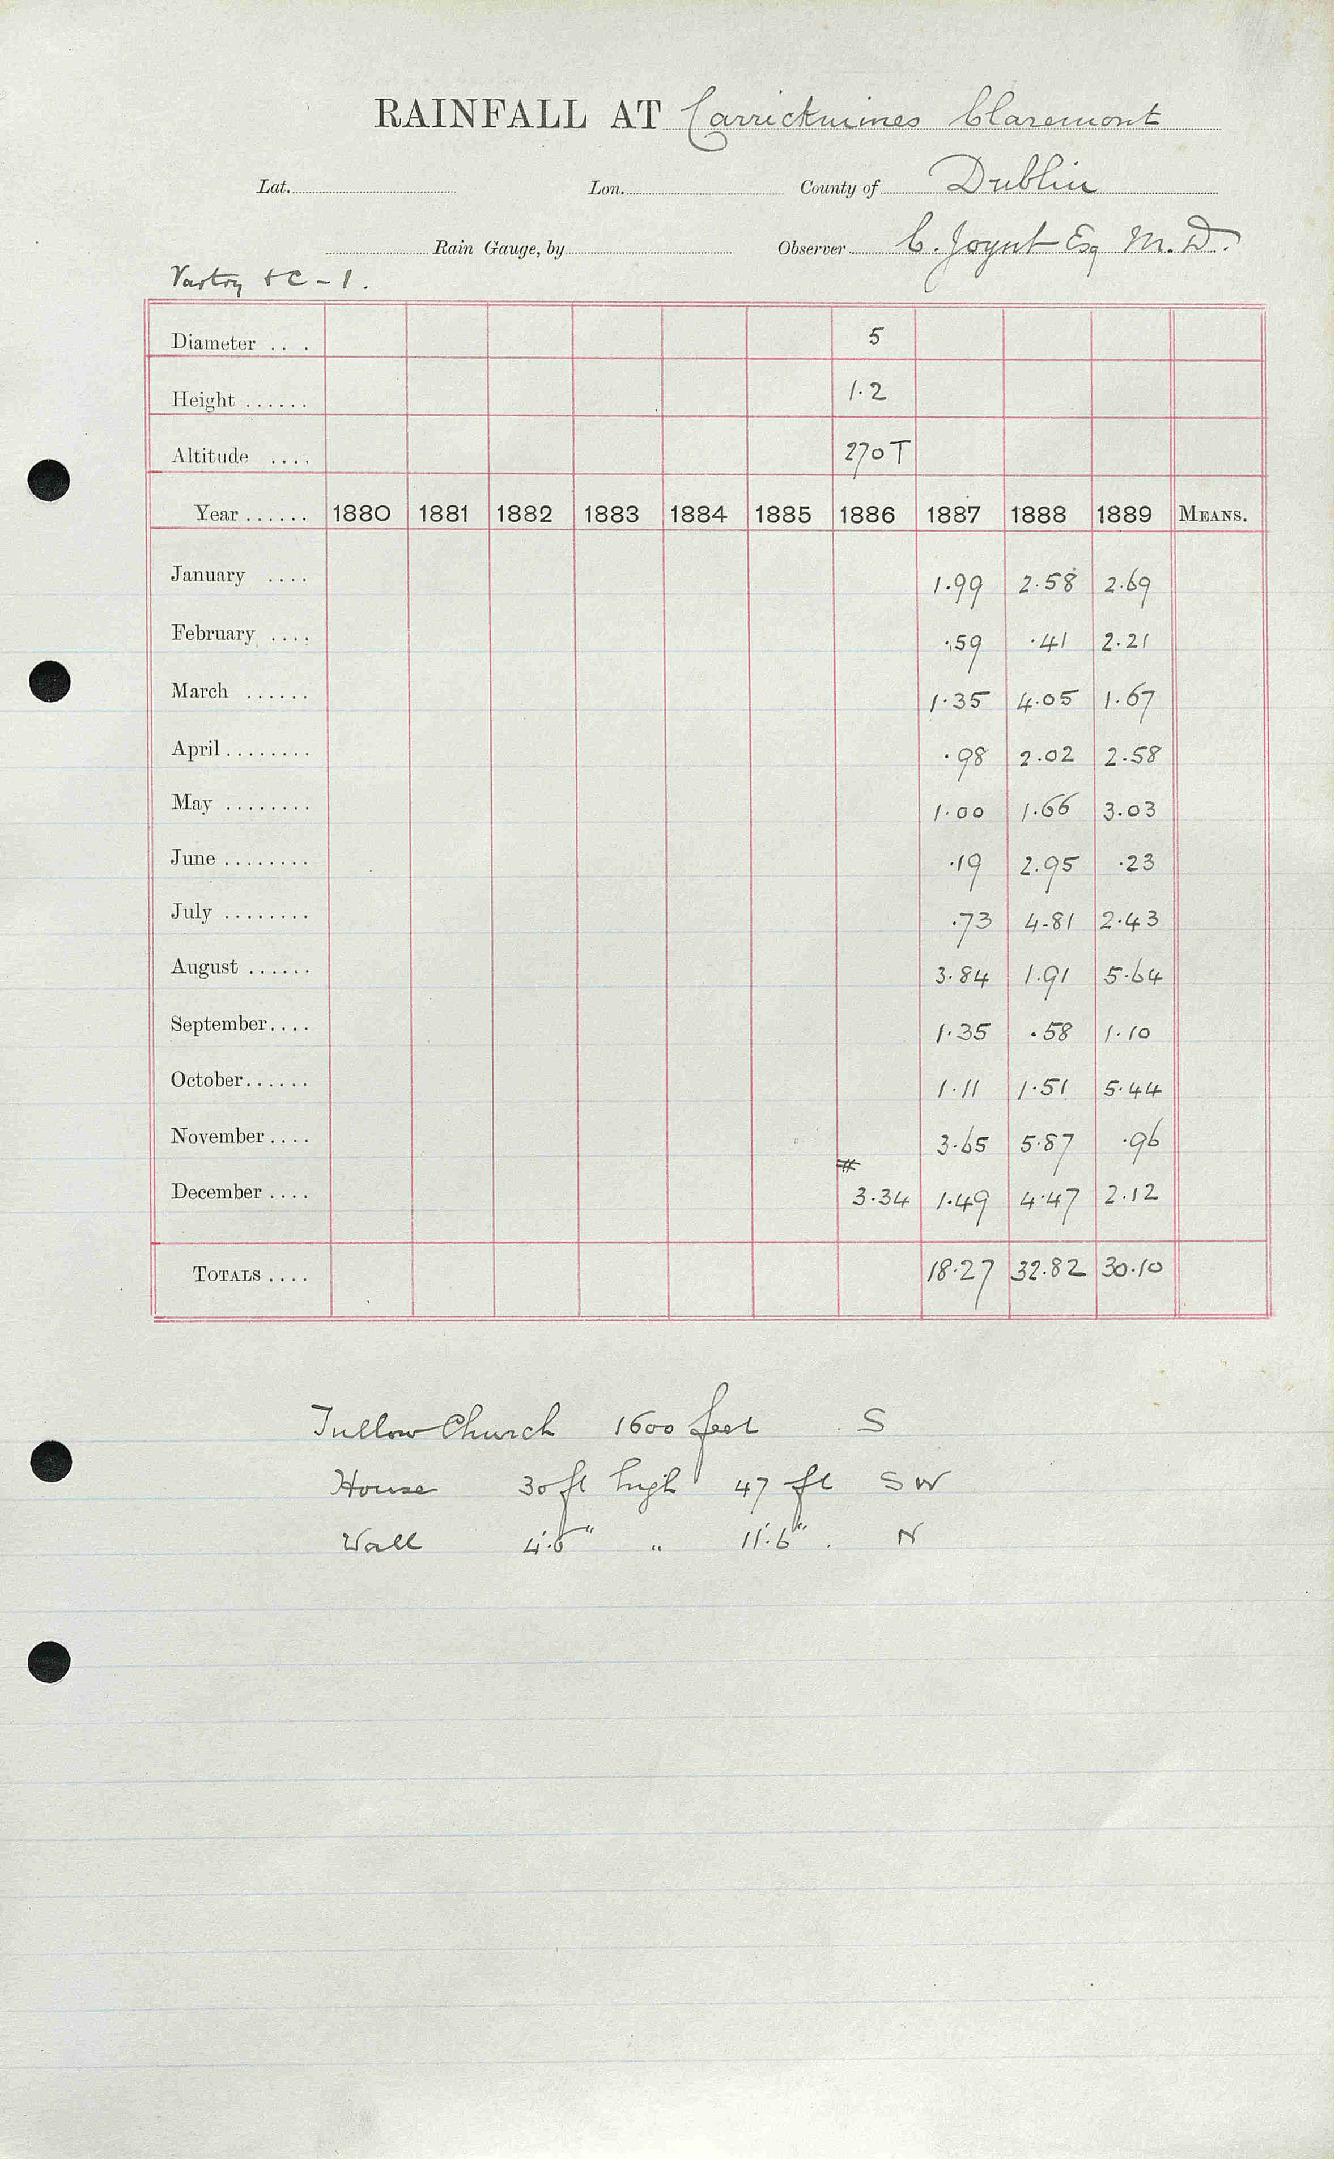 RAINFALL AT Carrickmines Claremont
Lat. Lon. County of Dublin
Rain Gauge, by Observer C. Joynt Esq M.D.
Vartry & C - 1.
Diameter ... 5
Height ...... 1.2
Altitude .... 270 T
Year ...... 1880 1881 1882 1883 1884 1885 1886 1887 1888 1889 MEANS.
January .... 1.99 2.58 2.69
February .... .59 .41 2.21
March ...... 1.35 4.05 1.67
April ........ .98 2.02 2.58
May ........ 1.00 1.66 3.03
June ........ .19 2.95 .23
July ........ .73 4.81 2.43
August ...... 3.84 1.91 5.64
September .... 1.35 .58 1.10
October ...... 1.11 1.51 5.44
November .... 3.65 5.87 .96
#
December .... 3.34 1.49 4.47 2.12
TOTALS .... 18.27 32.82 30.10
Tullow Church 1600 feet S
House 30 ft high 47 ft SW
Wall 4'.6" " 11'.6". N